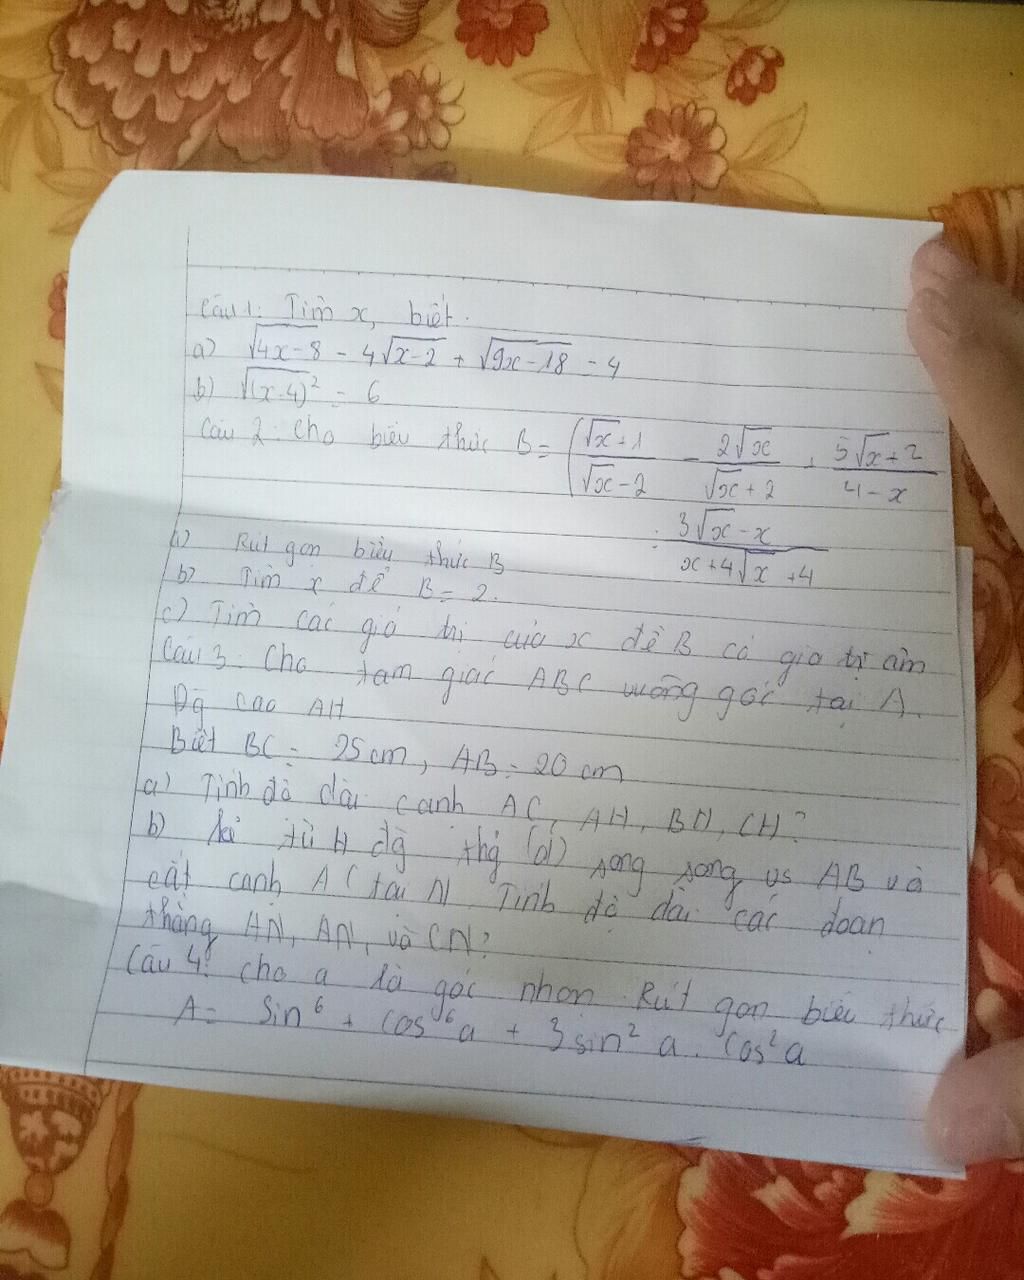 Câu 1: Tìm x, biết.
a) √4x-8 - 4√x-2 + √9x-18 = 4
b) √(x-4)² = 6
Câu 2: Cho biểu thức B = (√x+1/√x-2 - 2√x/√x+2 + 5√x+2/4-x
: 3√x-x/x+4√x+4
a) Rút gọn biểu thức B
b) Tìm x để B = 2.
c) Tìm các giá trị của x để B có giá trị âm
Câu 3: Cho tam giác ABC vuông góc tại A.
Đg cao AH
Biết BC = 25 cm, AB = 20 cm
a) Tính độ dài cạnh AC, AH, BH, CH?
b) kẻ từ H đg thg (d) song song vs AB và
cắt cạnh AC tại N. Tính độ dài các đoạn
thẳng HN, AN, và CN?
Câu 4: cho a là góc nhọn Rút gọn biểu thức
A = Sin⁶ + Cos⁶a + 3sin² a. Cos² a